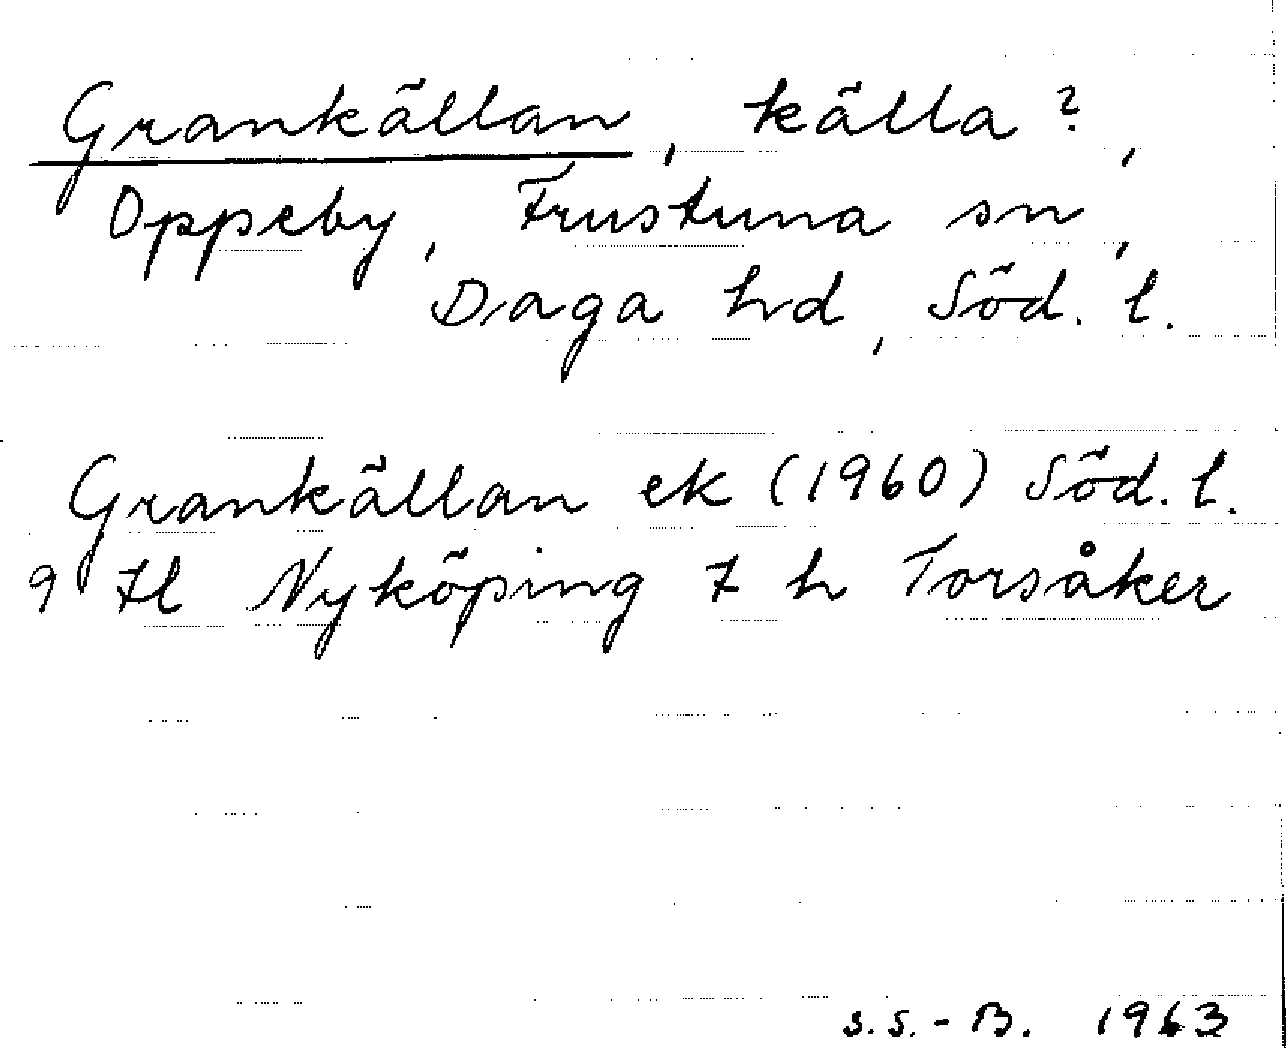 Grankällan, källa?,
Oppeby, Frustuna sn,
Daga hd, Söd. l.
Grankällan ek (1960) Söd. l.
9 tl Nyköping 7 h Torsåker
S.S.-B. 1963